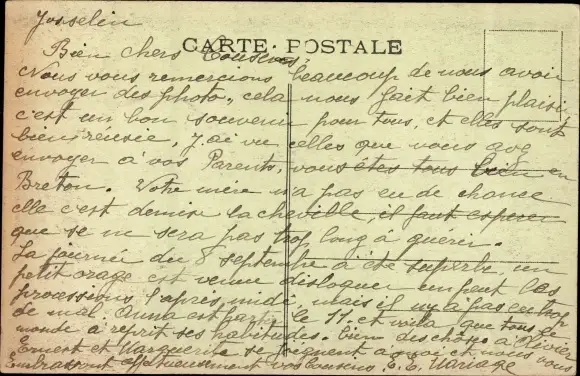 Josselin
CARTE POSTALE
Bien chers Cousins
Nous vous remercions beaucoup de nous avoir
envoyer des photo, cela nous fait bien plaisir
c'est un bon souvenir pour tous, et elles sont
bien réussie, J'ai vu celles que vous avez
envoyer a vos Parents, vous êtes tous bien en
Breton. Votre mère n'a pas eu de chance
elle c'est demise la cheville, il faut esperer
que se ne sera pas trop long à guérir.
La journée du 8 septembre à été superbe, un
petit orage est venue disloquer un peut les
processions l'apres midi, mais il n'y a pas eu trop
de mal. Anna est parti le 11. et voila que tous le
monde a reprit ses habitudes. bien des choses à Olivier
Ernest et Marguerite se joignent a moi et nous vous
embrassont affectueusement vos cousins E. E. Mariage